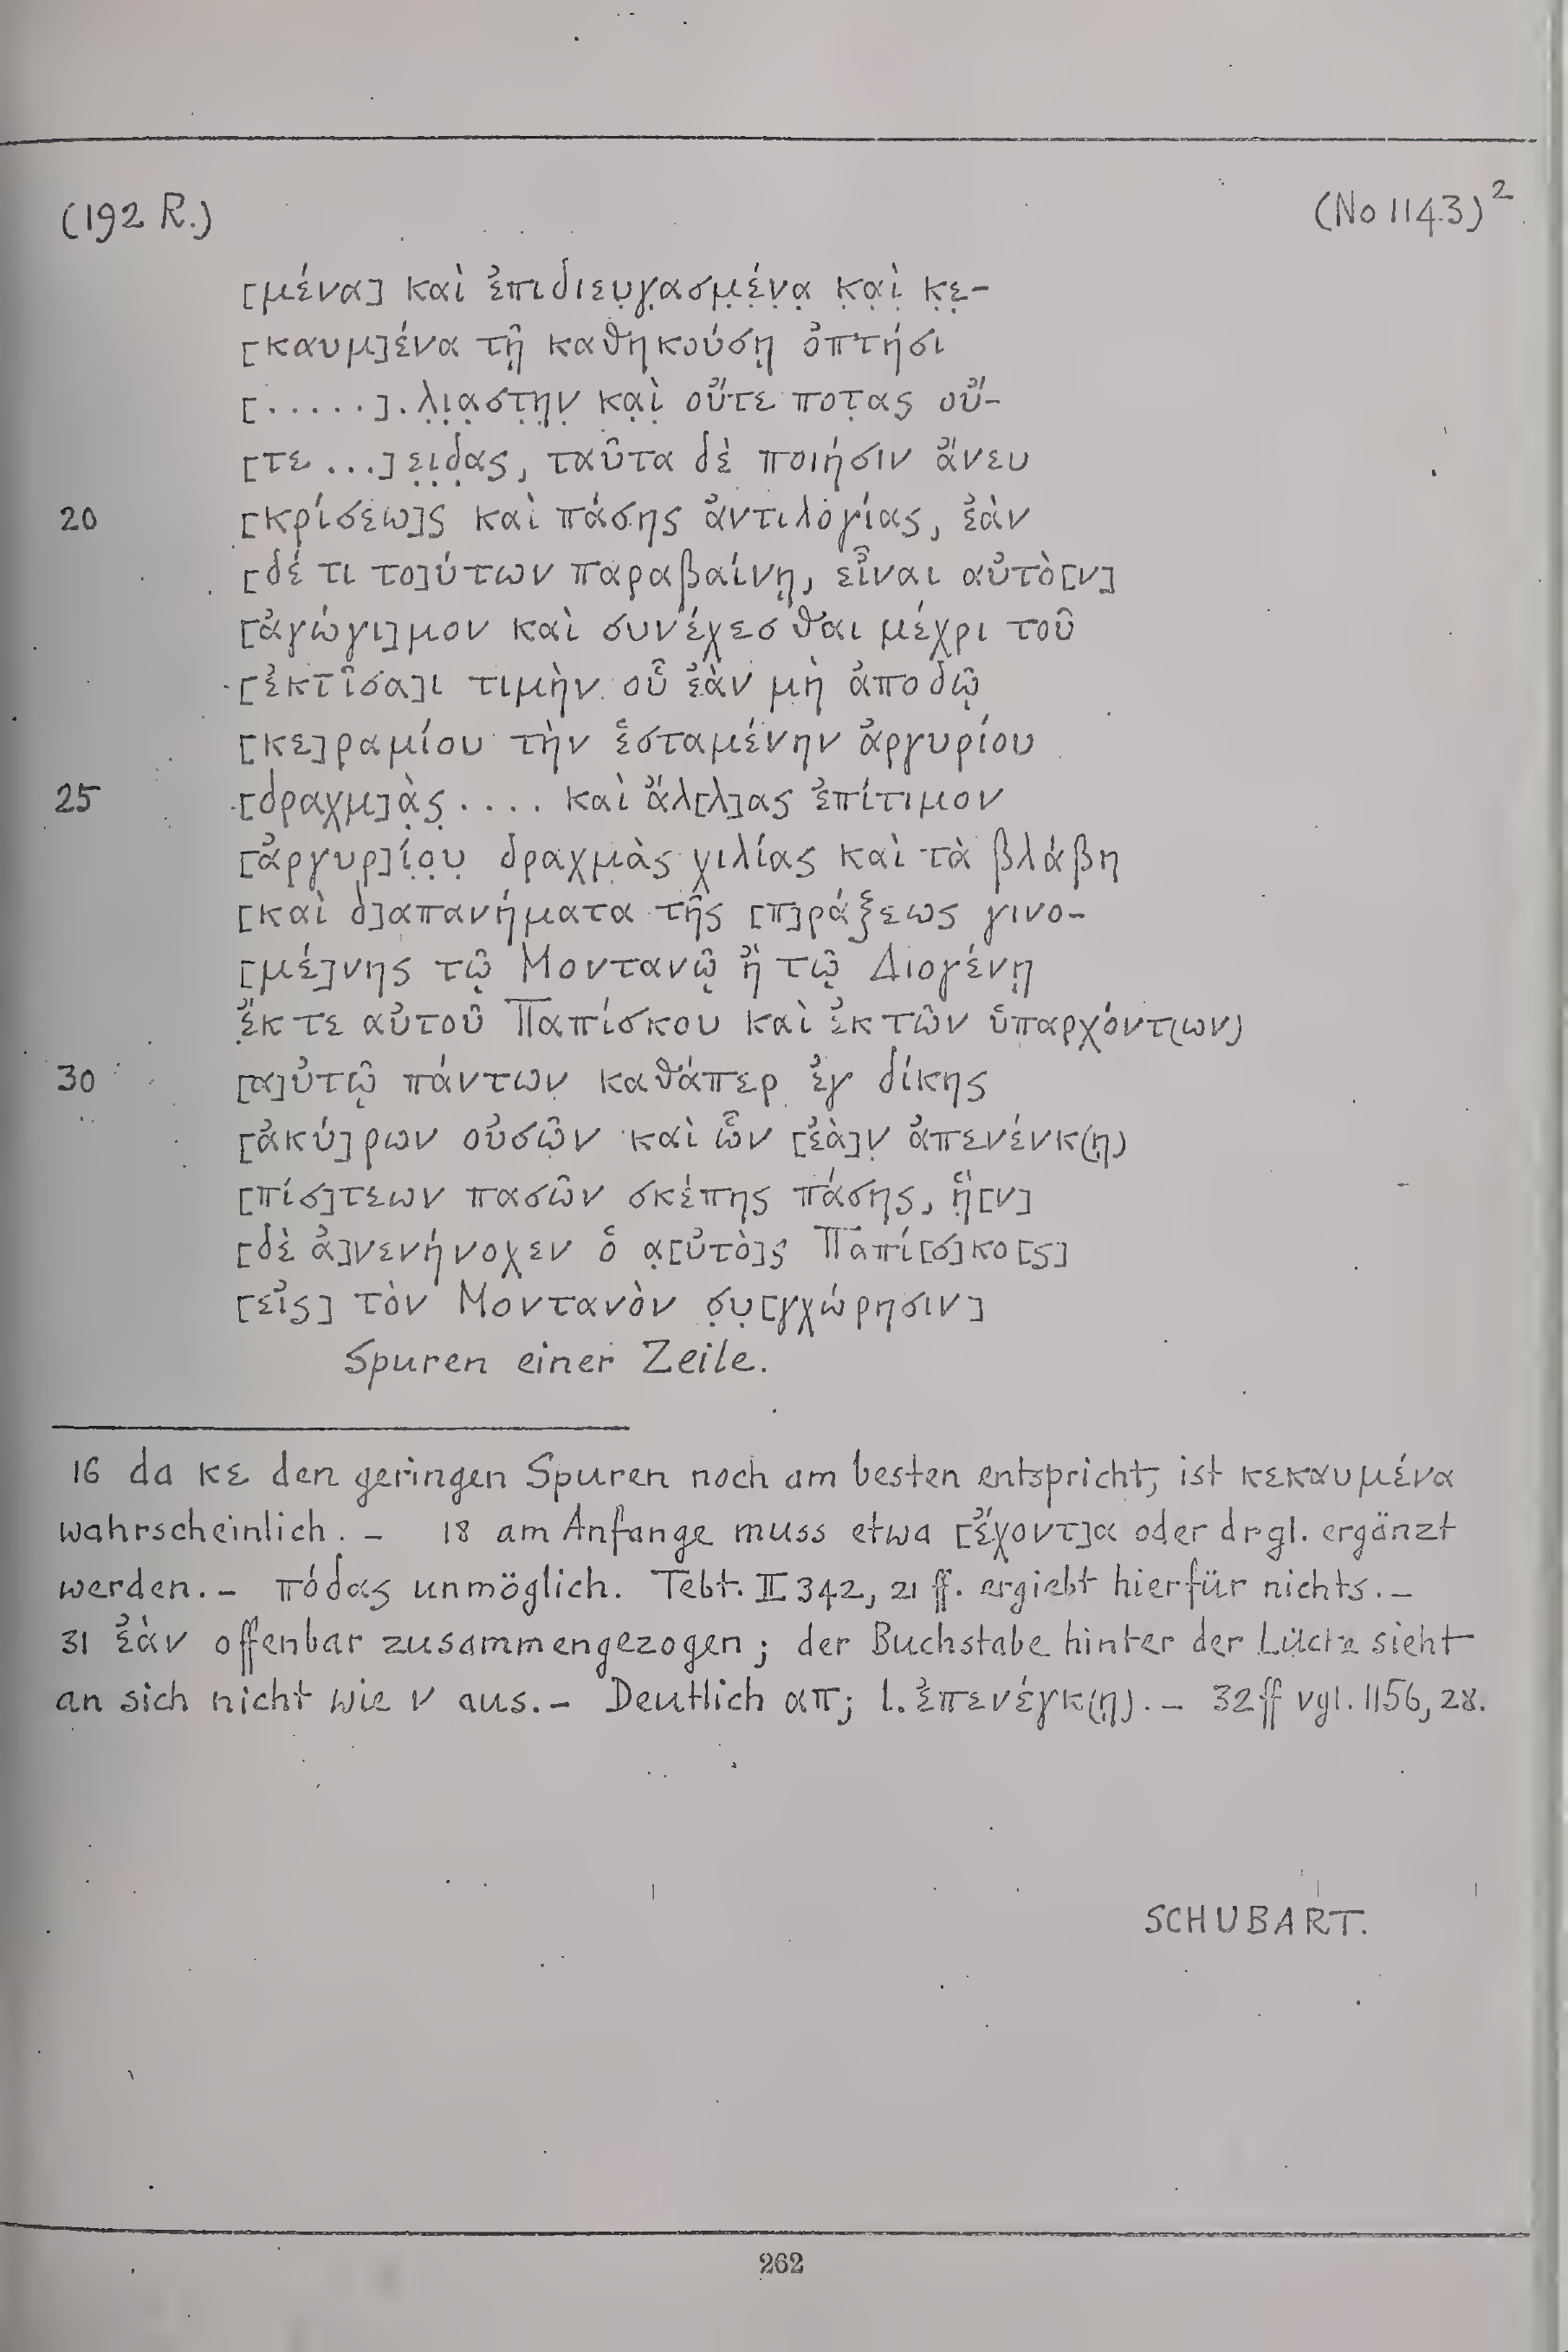 (192 R.) (No 1143)²
[μένα] καὶ ἐπιδιευ̣γ̣ασμ̣έ̣ν̣α̣ κ̣α̣ὶ̣ κ̣ε̣-
[καυμ]ένα τῇ καθηκούσῃ ὀπτήσι
[.....].λ̣ι̣α̣σ̣τ̣η̣ν̣ κα̣ὶ̣ οὔτε ποτ̣ας οὔ-
[τε ...]ε̣ι̣δ̣ας, ταῦτα δὲ ποιήσιν ἄνευ
20 [κρίσεω]ς καὶ πάσης ἀντιλογίας, ἐὰν
[δέ τι το]ύτων παραβαίνῃ, εἶναι αὐτὸ[ν]
[ἀγώγι]μον καὶ συνέχεσθαι μέχρι τοῦ
[ἐκτῖσα]ι τιμὴν οὗ ἐὰν μὴ ἀποδῷ
[κε]ραμίου τὴν ἑσταμένην ἀργυρίου
25 [δραχμ]ὰ̣ς̣ .... καὶ ἄλ[λ]ας ἐπίτιμον
[ἀργυρ]ί̣ο̣υ̣ δραχμὰς χιλίας καὶ τὰ βλάβη
[καὶ δ]απανήματα τῆς [π]ράξεως γινο-
[μέ]νης τῷ Μοντανῷ ἢ τῷ Διογένῃ
ἔ̣κ τε αὐτοῦ Παπίσκου καὶ ἐκ τῶν ὑπαρχόντ(ων)
30 [α]ὐτῷ πάντων καθάπερ ἐγ δίκης
[ἀκύ]ρων οὐσῶν καὶ ὧν [ἐὰ]ν ἀπενένκ(ῃ)
[πίσ]τεων πασῶν σκέπης πάσης, ἣ̣[ν]
[δὲ ἀ]νενήνοχεν ὁ α̣[ὐτὸ]ς Παπί[σ]κο[ς]
[εἰς] τὸν Μοντανὸν σ̣υ̣[γχώρησιν]
Spuren einer Zeile.
16 da κε den geringen Spuren noch am besten entspricht, ist κεκαυμένα
wahrscheinlich. – 18 am Anfange muss etwa [ἔχοντ]α oder drgl. ergänzt
werden. – πόδας unmöglich. Tebt. II 342, 21 ff. ergiebt hierfür nichts. –
31 ἐὰν offenbar zusammengezogen; der Buchstabe hinter der Lücke sieht
an sich nicht wie ν aus. – Deutlich απ; l. ἐπενέγκ(ῃ). – 32 ff vgl. 1156, 28.
SCHUBART.
262